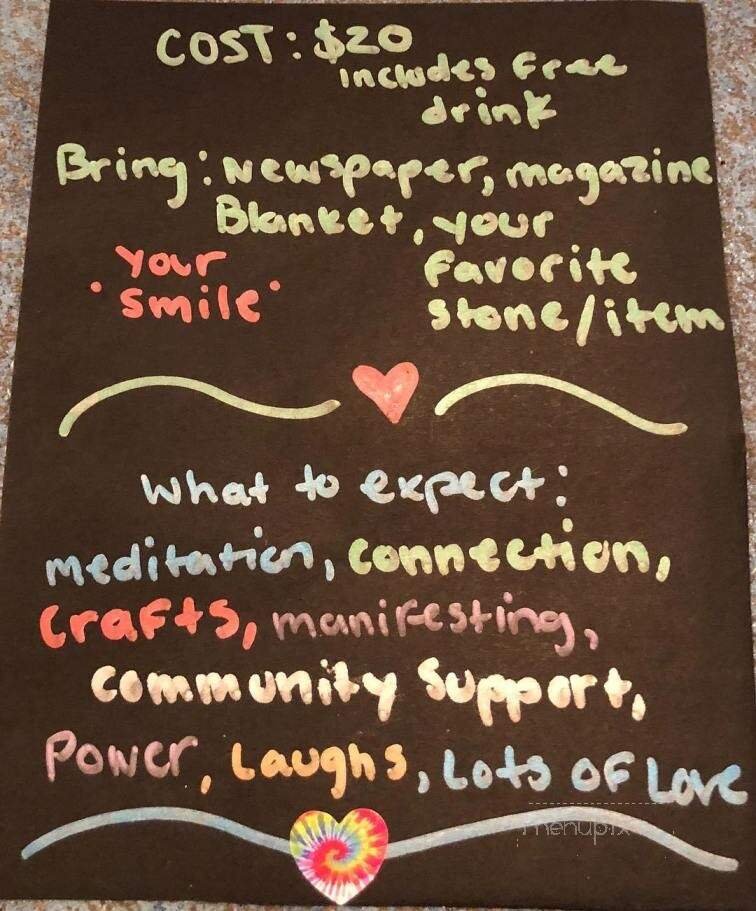 COST: $20
includes free
drink
Bring: Newspaper, magazine
Blanket, your
favorite
stone/item
your
"smile"
What to expect:
meditation, connection,
Crafts, manifesting,
Community Support,
Power, Laughs, Lots OF Love
menupix